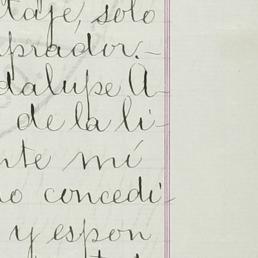 taje, solo
prador.—
dalupe A-
de la li-
nte mí
no concedi-
y espon